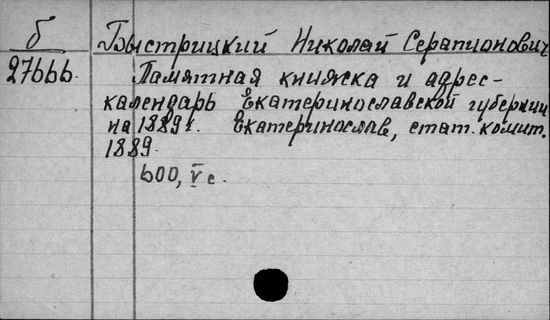 б
27666.
Быстрицкий Николай Серапионович
Памятная книжка и адрес-
календарь Екатеринославской губернии
на 1889 г. Екатеринослав, стат. комит.
1889.
600, V с.